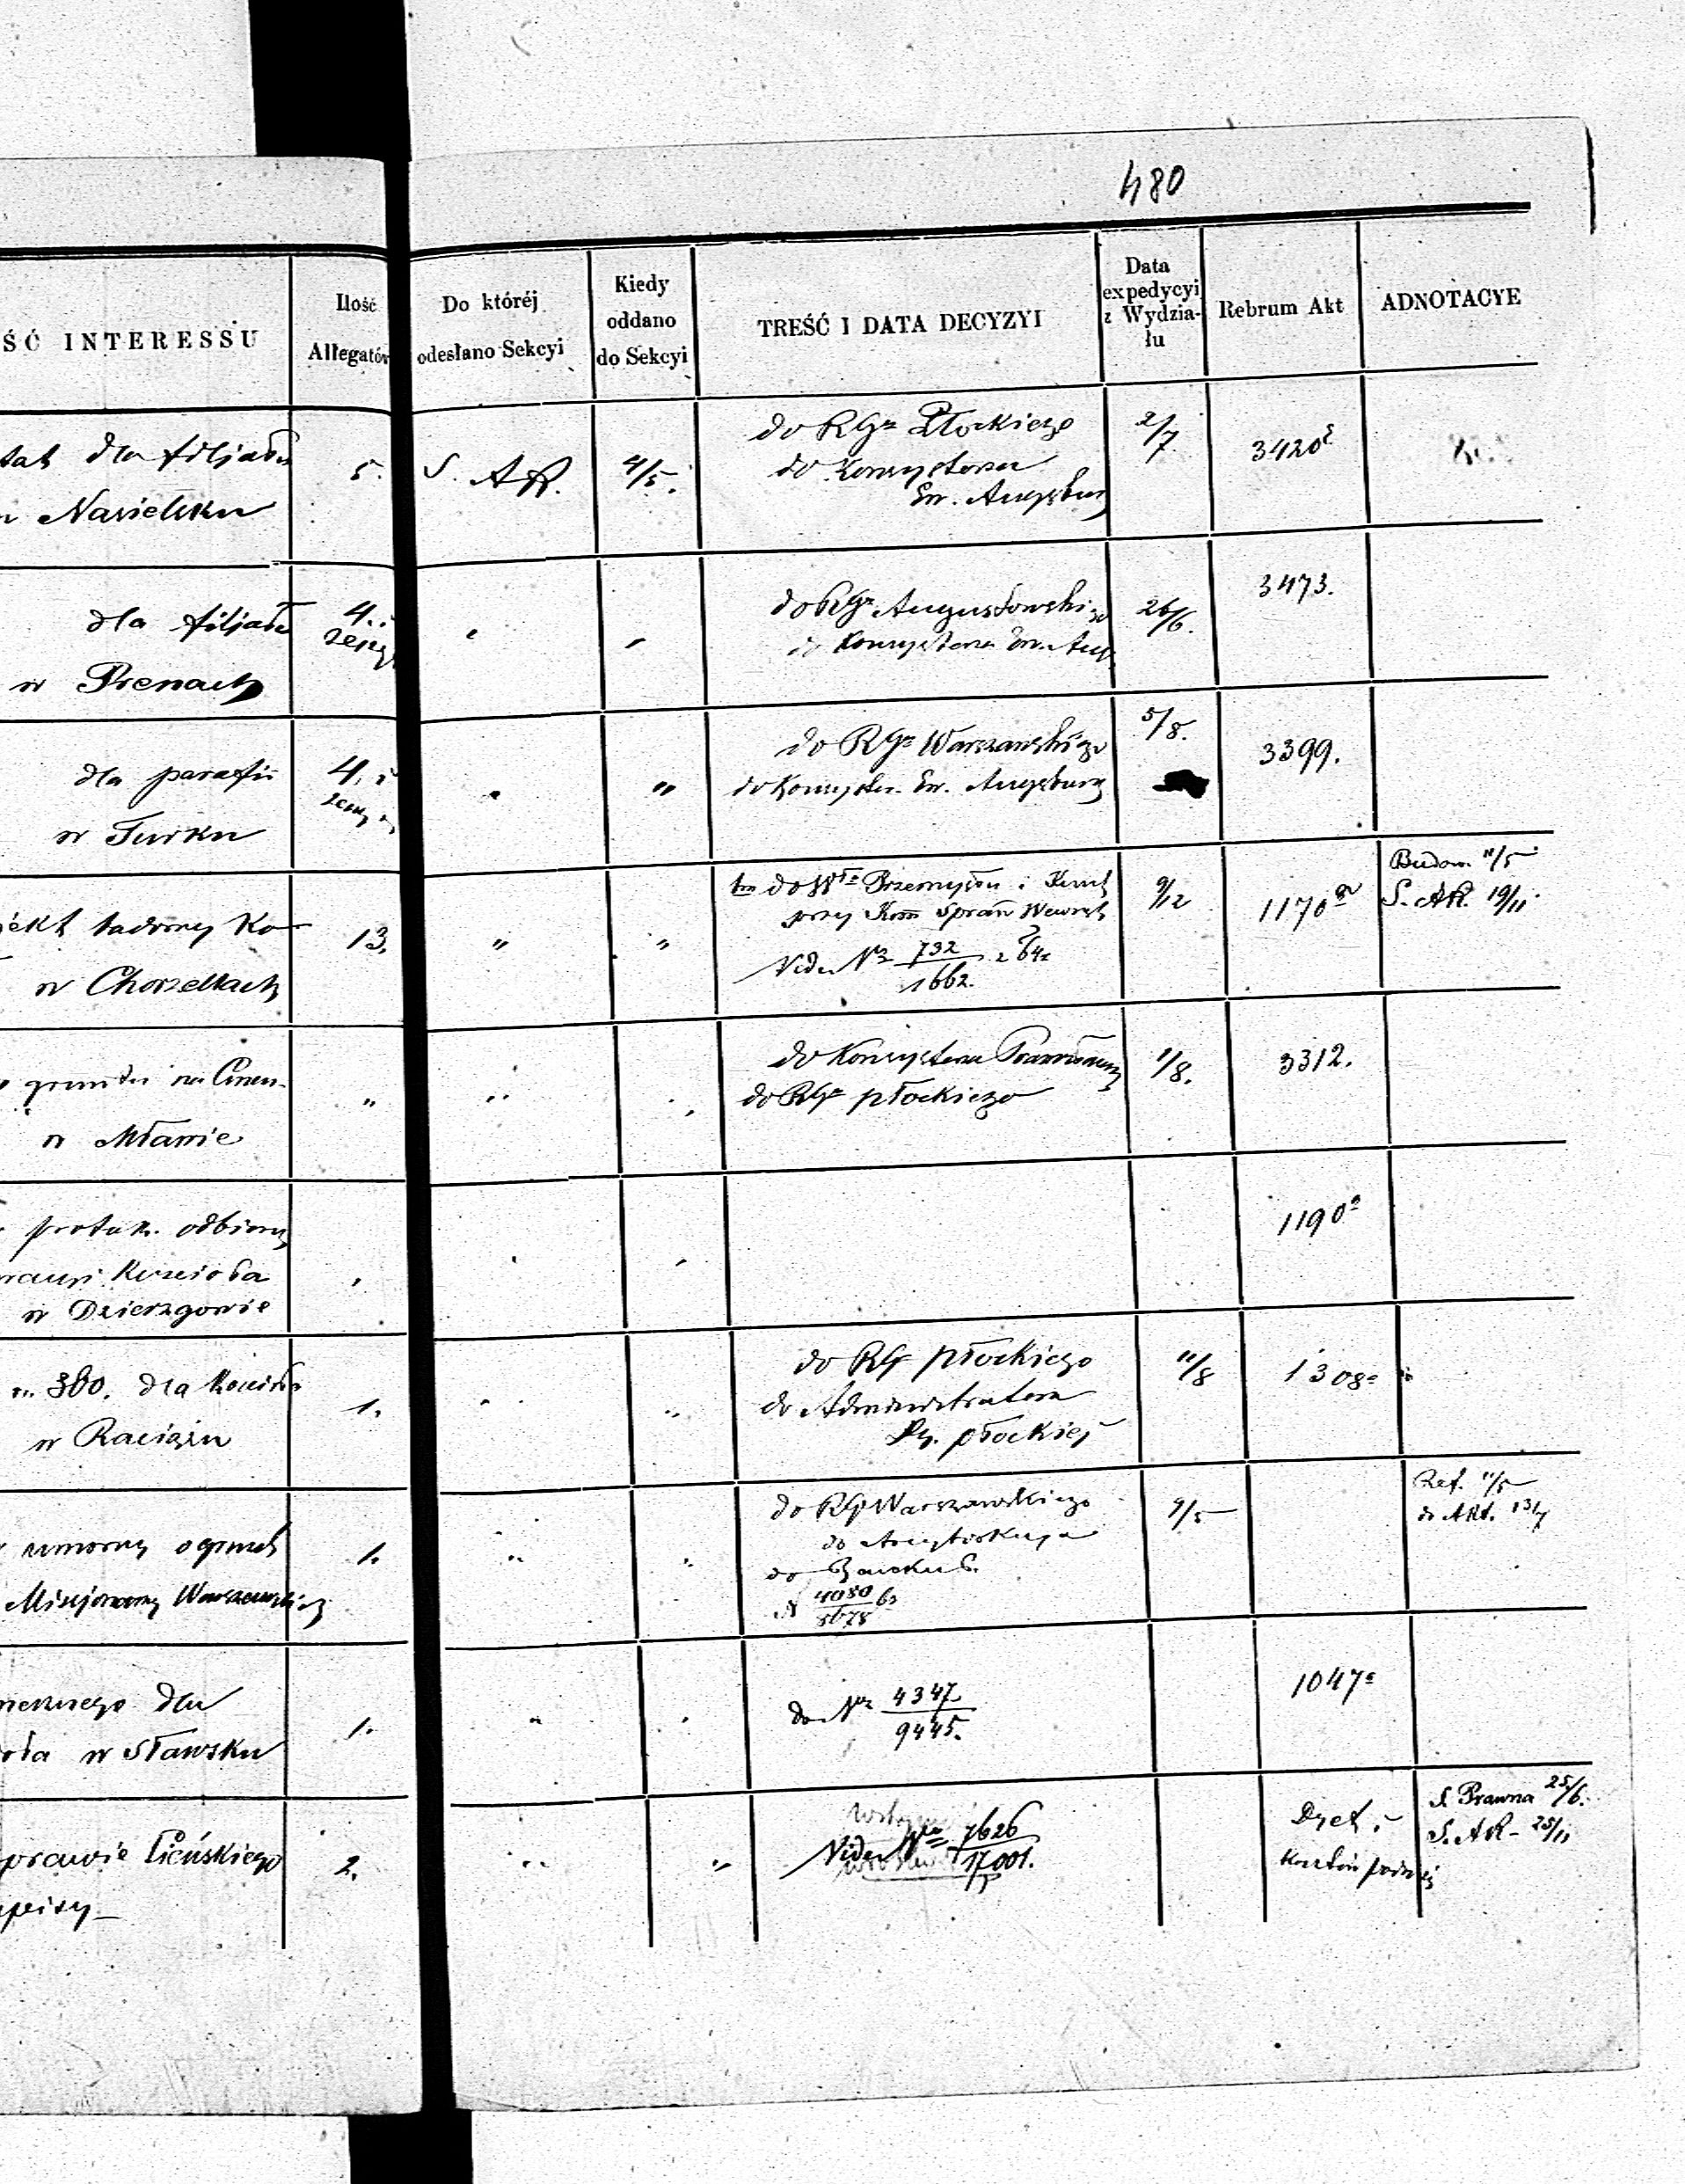 480
ŚĆ INTERESSU
Ilość
Allegatów
Do któréj
odesłano Sekcyi
Kiedy
oddano
do Sekcyi
TREŚĆ I DATA DECYZYI
Data
expedycyi
z Wydzia-
łu
Rebrum Akt
ADNOTACYE
tat dla filjału
w Nasielsku
5.
S. AR.
4/5.
do RGu Płockiego
do Konsystorza
Ew. Augsburg
2/7
3420
dla filjału
w Prenach
4.
do RGu Augustowskiego
do Konsystorza Ew. Aug.
26/6.
3473.
dla parafii
w Turku
4. i
"
do RGu Warszawskiego
do Konsyster. Ew. Augsburg
5/8.
3399.
jekt budowy Ko-
w Chorzellach
13.
"
"
do Przemysłu i Kunsz
przy Kom Spraw Wewnęt
Vide No 732/1662. z 64
9/12
1170
Budow. 11/5
S. AR. 19/11.
gruntu na Cmen-
w Mławie
"
do Konsystorza
do RGu płockiego
1/8.
3312.
protok. odbiory
Kościoła
w Dzierzgowie
1190
360. dla Kościoła
w Raciążu
1.
do RG płockiego
do Administratora
Dy. płockiej
11/8
1308
o grunch
Misyonarzy Warszawskich
1.
do RG Warszawskiego
do Arcybiskupa
do Banku P.
N 4080/8678 63
9/5
Ref. 11/5
do Akt. 13/7
dla
oła w Sławsku
1.
do No 4347/9445.
1047
prawie Cieńskiego
apisy
2.
"
Vide No 7626/17001.
Dzet. i
Kosztów
S. Prawna 25/6.
S. AR- 25/11